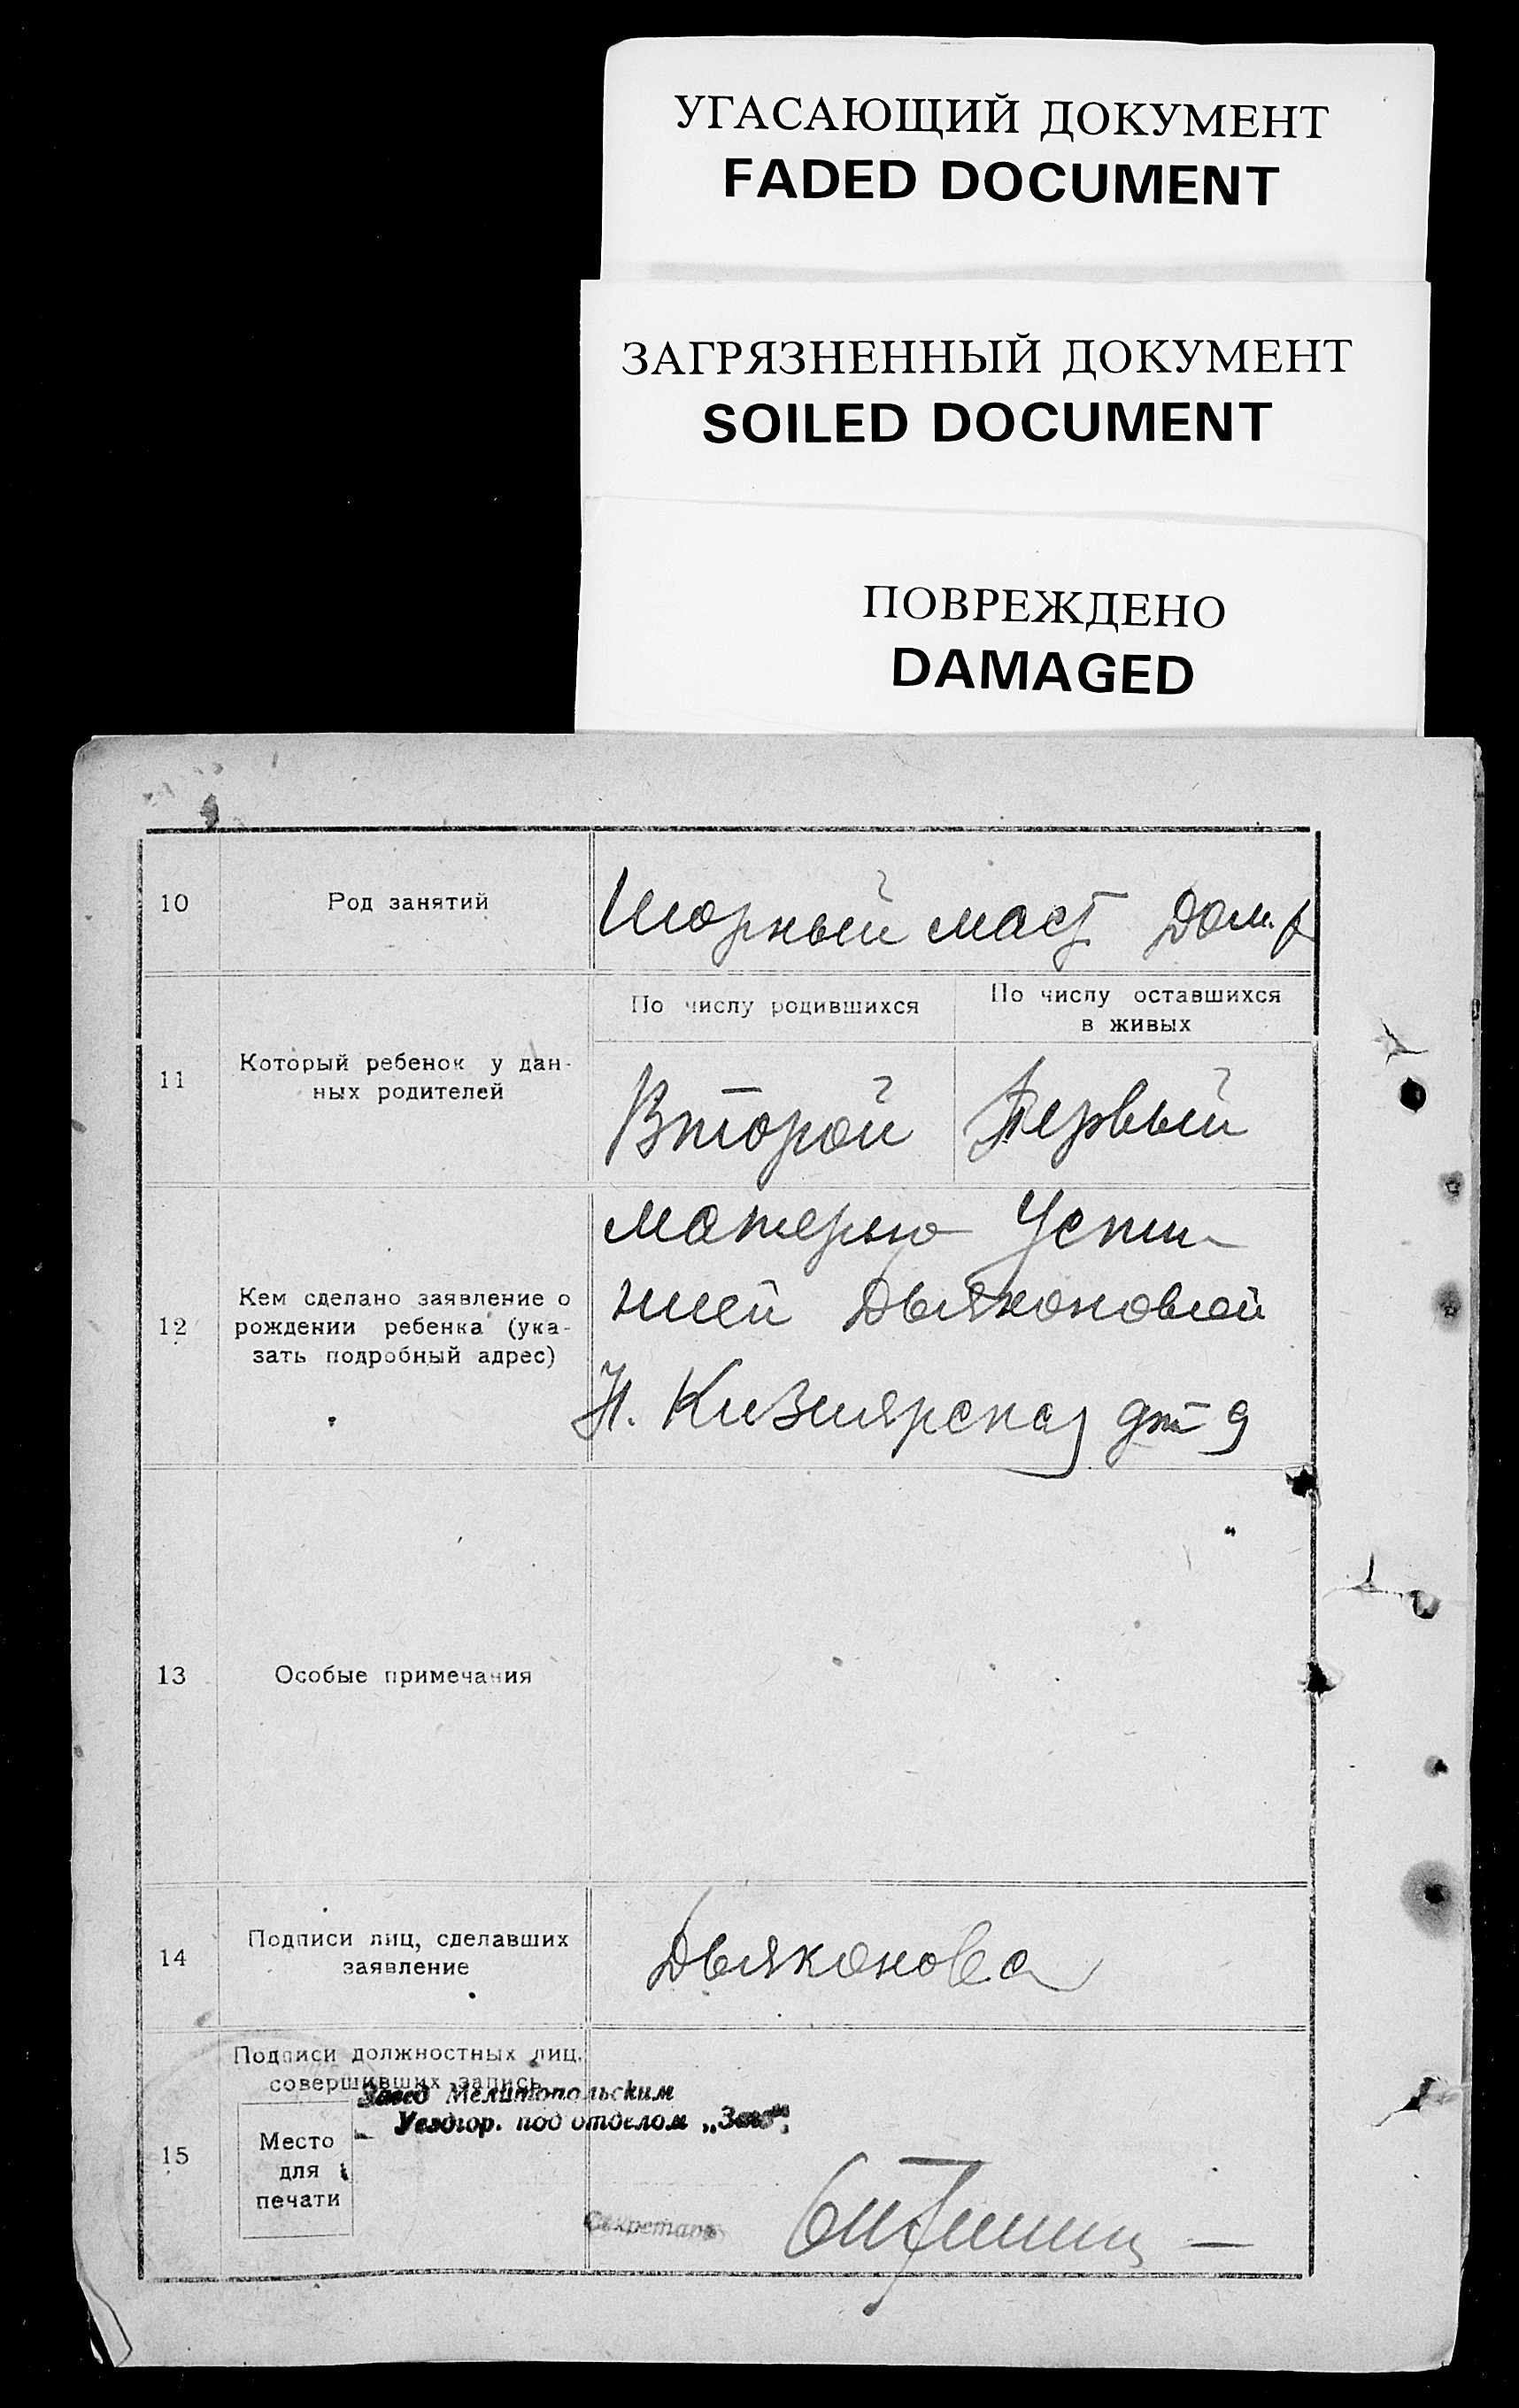 УГАСАЮЩИЙ ДОКУМЕНТ
FADED DOCUMENT
ЗАГРЯЗНЕННЫЙ ДОКУМЕНТ
SOILED DOCUMENT
ПОВРЕЖДЕНО
DAMAGED
10 Род занятий Шорный маст Дом. р
По числу родившихся
По числу оставшихся
в живых
11 Который ребенок у дан-
ных родителей
Второй Первый
12 Кем сделано заявление о
рождении ребенка (ука-
зать подробный адрес)
матерью Усти-
нией Дьяконовой
Н. Кизиярская 9
13 Особые примечания
14 Подписи лиц, сделавших
заявление
Дьяконова
15 Подписи должностных лиц,
совершивших запись
Завед Мелитопольским
Уездгор. под отделом „Загс“
Место
для
печати
Секретарь